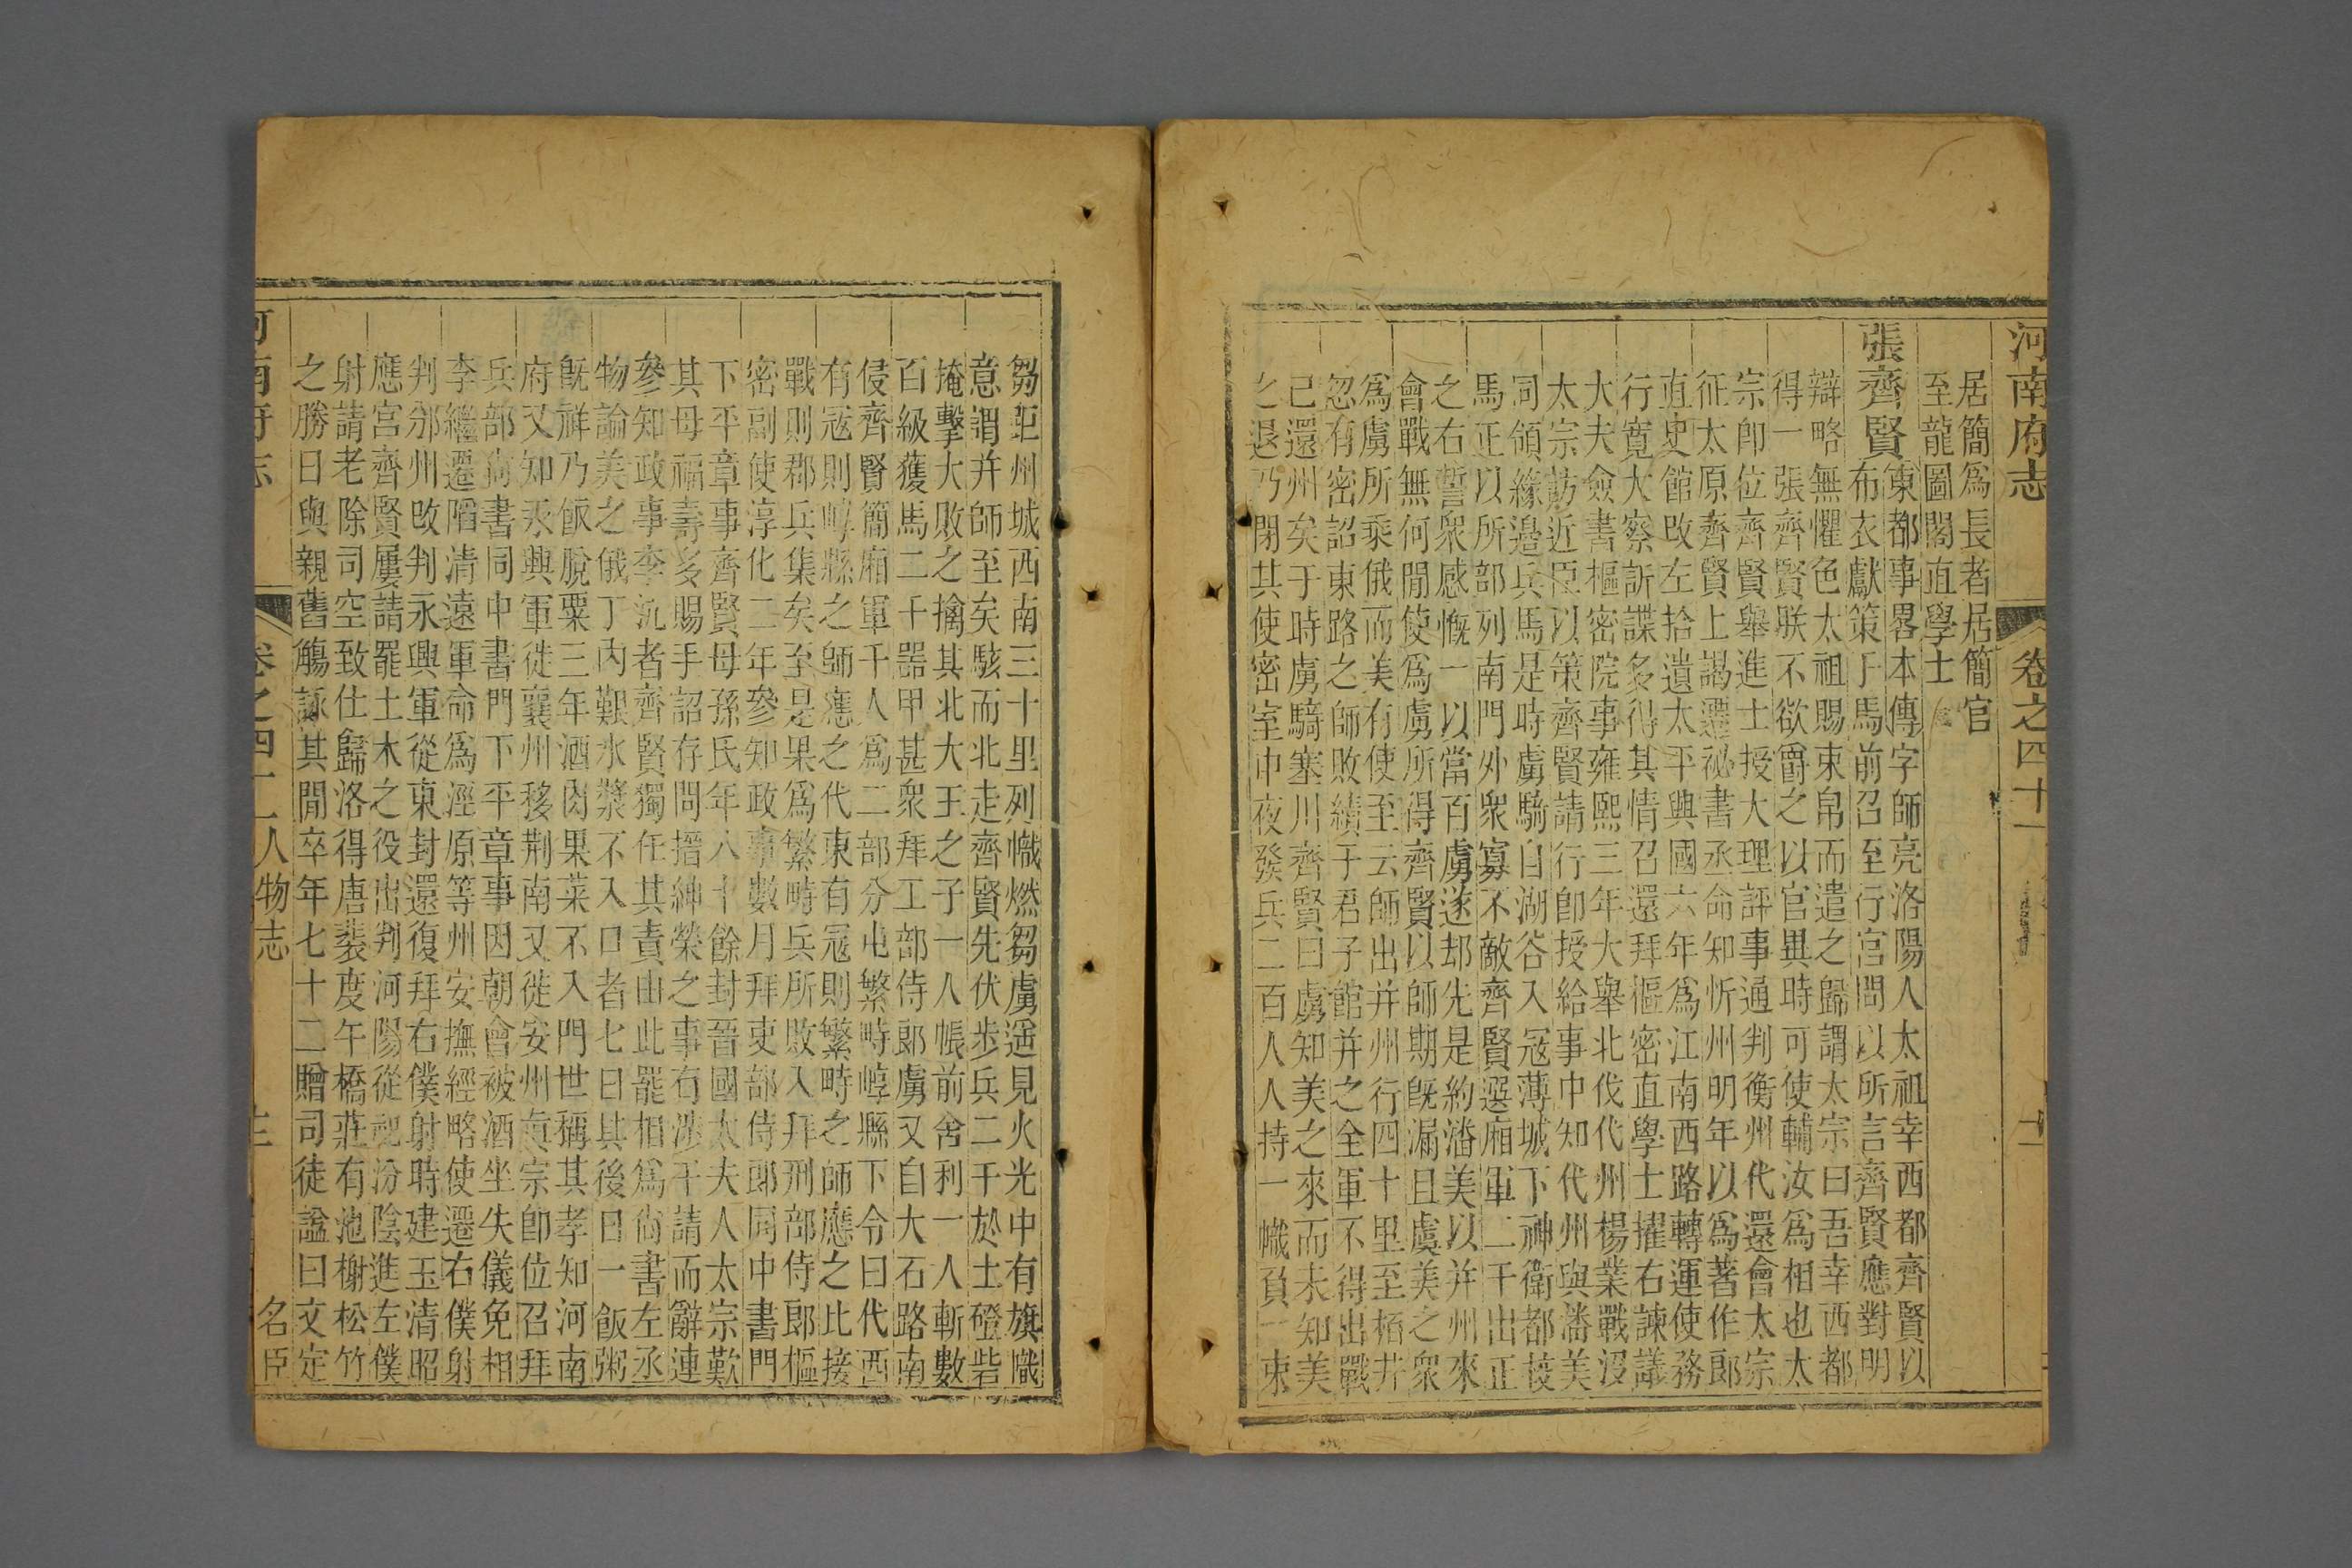 河南府志 卷之四十
居簡爲長者居簡官
至龍圖閣直學士
張齊賢 東都事畧本傳字師亮洛陽人太祖幸西都齊賢以
布衣獻策于馬前召至行宮問以所言齊賢應對明
辯略無懼色太祖賜束帛而遣之歸謂太宗曰吾幸西都
得一張齊賢朕不欲爵之以官異時可使輔汝爲相也太
宗卽位齊賢舉進士授大理評事通判衡州代還會太宗
征太原齊賢上謁遷祕書丞命知忻州明年以爲著作郎
直史館改左拾遺太平興國六年爲江南西路轉運使務
行寬大察訴諜多得其情召還拜樞密直學士擢右諫議
大夫僉書樞密院事雍熙三年大舉北伐代州楊業戰沒
太宗訪近臣以策齊賢請行卽授給事中知代州與潘美
同領緣邊兵馬是時虜騎自湖谷入寇薄城下神衛都校
馬正以所部列南門外衆寡不敵齊賢選廂軍二千出正
之右誓衆感慨一以當百虜遂却先是約潘美以并州來
會戰無何閒使爲虜所得齊賢以師期旣漏且虞美之衆
爲虜所乘俄而美有使至云師出并州行四十里至栢井
忽有密詔東路之師敗績于君子館并之全軍不得出戰
已還州矣于時虜騎塞川齊賢曰虜知美之來而未知美
之退乃閉其使密室中夜發兵二百人人持一幟負一束
芻距州城西南三十里列幟燃芻虜遥見火光中有旗幟
意謂并師至矣駭而北走齊賢先伏步兵二千於土磴砦
掩擊大敗之擒其北大王之子一人帳前舍利一人斬數
百級獲馬二千器甲甚衆拜工部侍郎虜又自大石路南
侵齊賢簡廂軍千人爲二部分屯繁畤崞縣下令曰代西
有寇則崞縣之師應之代東有寇則繁畤之師應之比接
戰則郡兵集矣至是果爲繁畤兵所敗入拜刑部侍郎樞
密副使淳化二年參知政事數月拜吏部侍郎同中書門
下平章事齊賢母孫氏年八十餘封晉國太夫人太宗歎
其母福壽多賜手詔存問搢紳榮之事有涉干請而辭連
參知政事李沆者齊賢獨任其責由此罷相爲尙書左丞
物論美之俄丁內艱水漿不入口者七日其後日一飯粥
旣祥乃飯脫粟三年酒肉果菜不入門世稱其孝知河南
府又知永興軍徙襄州移荆南又徙安州眞宗卽位召拜
兵部尙書同中書門下平章事因朝會被酒坐失儀免相
李繼遷陷清遠軍命爲涇原等州安撫經略使遷右僕射
判邠州改判永興軍從東封還復拜右僕射時建玉清昭
應宮齊賢屢請罷土木之役出判河陽從祀汾陰進左僕
射請老除司空致仕歸洛得唐裴度午橋莊有池榭松竹
之勝日與親舊觴詠其閒卒年七十二贈司徒諡曰文定
河南府志 卷之四十一人物志 名臣